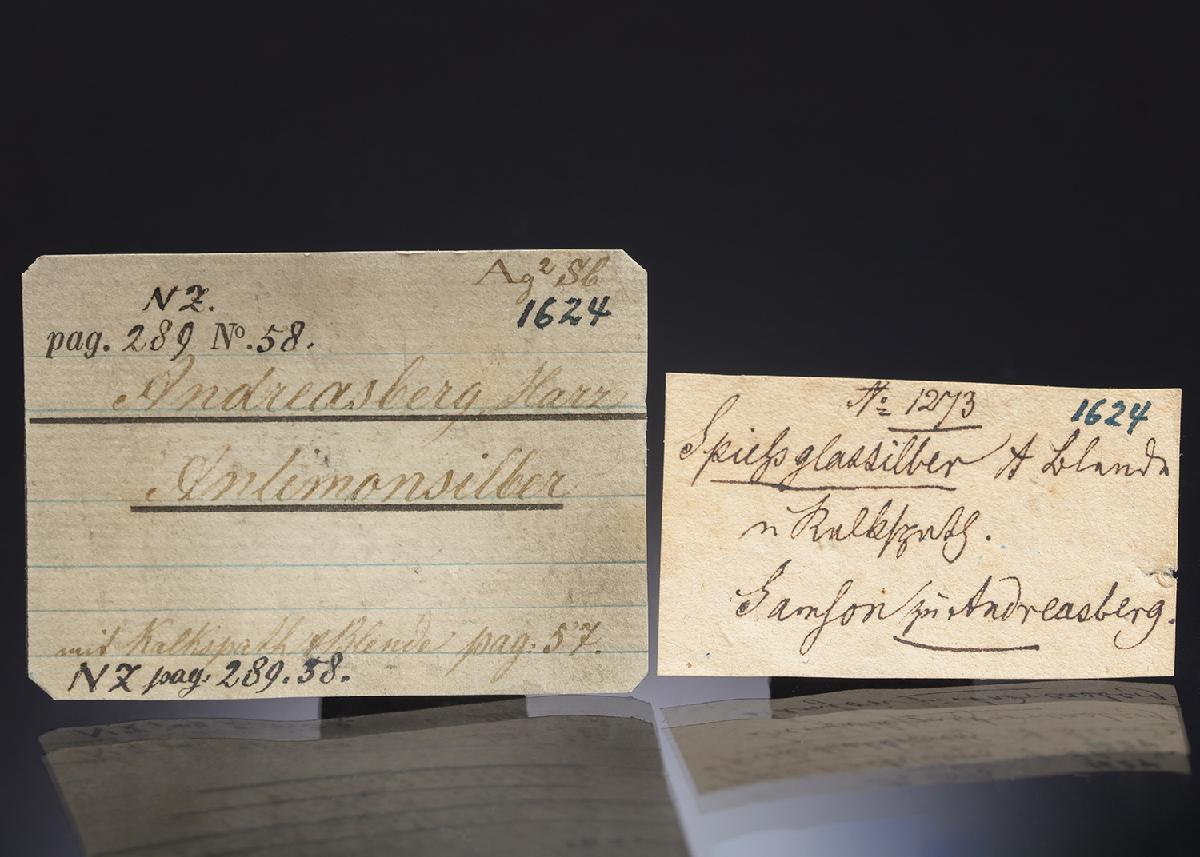 Ag² Sb
NZ.
1624
pag. 289 Nº. 58.
Andreasberg, Harz
Antimonsilber
mit Kalkspath & Blende pag. 57.
NZ pag. 289. 58.
Nº 1273
1624
Spießglassilber Blende
u Kalkspath.
Samson zu Andreasberg.